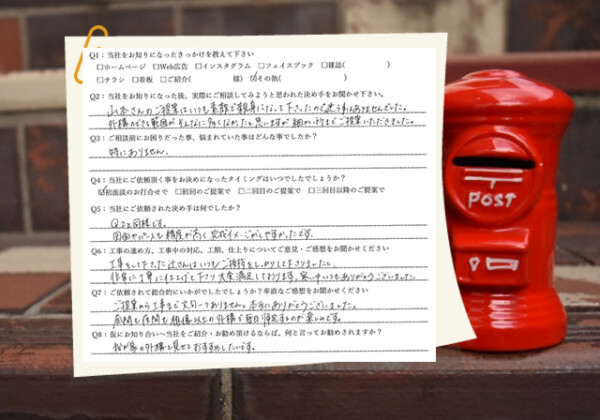 Q1：当社をお知りになったきっかけを教えて下さい
□ホームページ □Web広告 □インスタグラム □フェイスブック □雑誌( )
□チラシ □看板 □ご紹介( 様) ☑その他( )
Q2：当社をお知りになった後、実際にご相談してみようと思われた決め手をお聞かせ下さい。
山本さんのご提案はいつも素敵で親身になって下さったので迷う事はありませんでした。
外構ができる範囲がそんなに多くなかったと思いますが細かい所までご提案いただきました。
Q3：ご相談前にお困りだった事、悩まれていた事はどんな事でしたか？
特にありません。
Q4：当社にご依頼頂く事をお決めになったタイミングはいつでしたでしょうか？
☑初回面談のお打合せで □初回のご提案で □二回目のご提案で □三回目以降のご提案で
Q5：当社にご依頼された決め手は何でしたか？
Q2と同様です。
図面やパースも精度が高く完成イメージがしやすかったです。
Q6：工事の進め方、工事中の対応、工期、仕上りについてご意見・ご感想をお聞かせください
工事をして下さった辻さんはいつもご挨拶をしっかりして下さりました。
非常に丁寧に仕上げて下さり大変満足しております。暑い中いつもありがとうございました
Q7：ご依頼されて総合的にいかがでしたでしょうか？率直なご感想をお聞かせください
ご提案から工事まで文句一つありません。本当にありがとうございました。
昼間も夜間も想像以上の外構で毎日帰宅するのが楽しみです。
Q8：仮にお知り合いへ当社をご紹介・お勧め頂けるならば、何と言ってお勧めされますか？
我が家の外構を見せておすすめしたいです。
POST